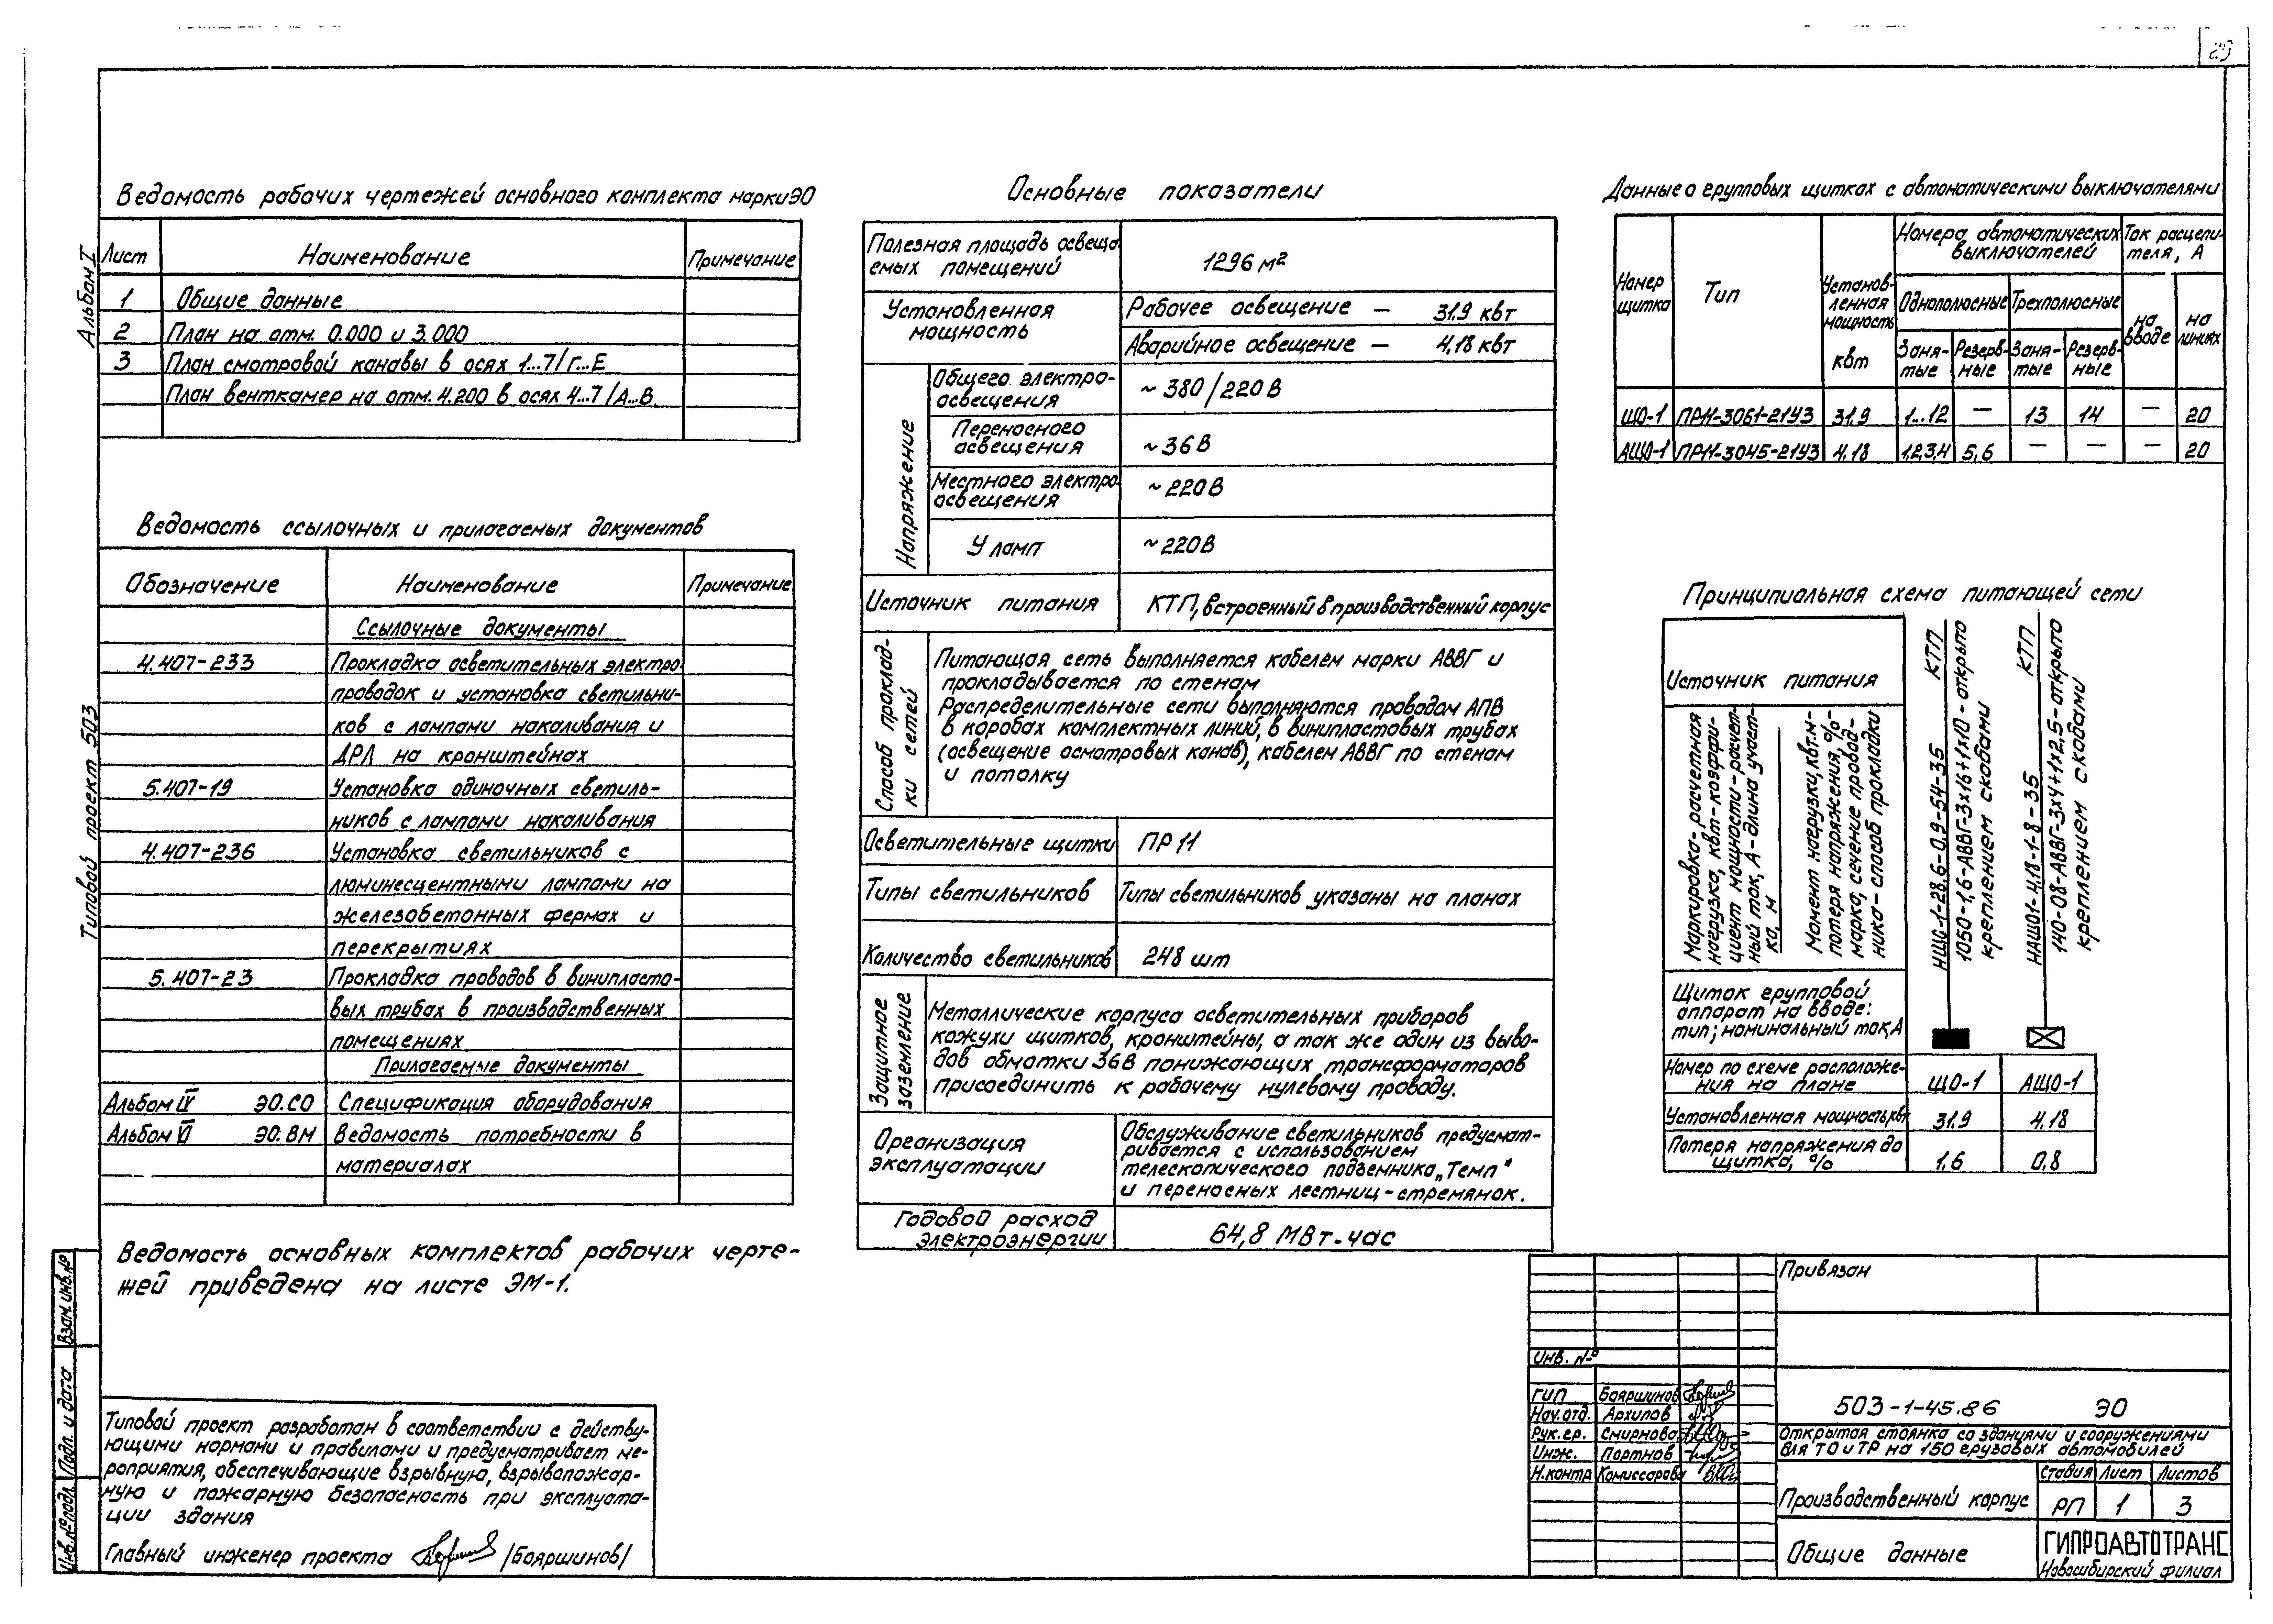 29
Альбом I
Типовой проект 503
Ведомость рабочих чертежей основного комплекта марки ЭО
Лист Наименование Примечание
1 Общие данные
2 План на отм. 0.000 и 3.000
3 План смотровой канавы в осях 1...7/Г...Е
План венткамер на отм. 4.200 в осях 4...7/А...В
Ведомость ссылочных и прилагаемых документов
Обозначение Наименование Примечание
Ссылочные документы
4.407-233 Прокладка осветительных электро
проводок и установка светильни-
ков с лампами накаливания и
ДРЛ на кронштейнах
5.407-19 Установка одиночных светиль-
ников с лампами накаливания
4.407-236 Установка светильников с
люминесцентными лампами на
железобетонных фермах и
перекрытиях
5.407-23 Прокладка проводов в винипласто-
вых трубах в производственных
помещениях
Прилагаемые документы
Альбом IV ЭО.СО Спецификация оборудования
Альбом VI ЭО.ВМ Ведомость потребности в
материалах
Ведомость основных комплектов рабочих черте-
жей приведена на листе ЭМ-1.
Типовой проект разработан в соответствии с действу-
ющими нормами и правилами и предусматривает ме-
роприятия, обеспечивающие взрывную, взрывопожар-
ную и пожарную безопасность при эксплуата-
ции здания
Главный инженер проекта /Бояршинов/
Взам. инв. №
Подп. и дата
Инв. № подл.
Основные показатели
Полезная площадь освеща-
емых помещений 1296 м²
Установленная мощность
Рабочее освещение — 31,9 квт
Аварийное освещение — 4,18 квт
Напряжение
Общего электро-
освещения ~ 380/220 В
Переносного
освещения ~ 36 В
Местного электро
освещения ~ 220 В
У ламп ~ 220 В
Источник питания КТП, встроенный в производственный корпус
Способ проклад-
ки сетей
Питающая сеть выполняется кабелем марки АВВГ и
прокладывается по стенам
Распределительные сети выполняются проводом АПВ
в коробах комплектных линий, в винипластовых трубах
(освещение осмотровых канав), кабелем АВВГ по стенам
и потолку
Осветительные щитки ПР 11
Типы светильников Типы светильников указаны на планах
Количество светильников 248 шт
Защитное
заземление
Металлические корпуса осветительных приборов
кожухи щитков, кронштейны, а так же один из выво-
дов обмотки 36 В понижающих трансформаторов
присоединить к рабочему нулевому проводу.
Организация
эксплуатации
Обслуживание светильников предусмат-
ривается с использованием
телескопического подъемника „Темп"
и переносных лестниц-стремянок.
Годовой расход
электроэнергии 64,8 МВт.час
Данные о групповых щитках с автоматическими выключателями
Номер
щитка
Тип
Установ-
ленная
мощность
квт
Номера автоматических
выключателей
Ток расцепи-
теля, А
Однополюсные Трехполюсные
Заня-
тые
Резерв-
ные
Заня-
тые
Резерв-
ные
на
вводе
на
линиях
ЩО-1 ПР11-3061-21У3 31,9 1...12 — 13 14 — 20
АЩО-1 ПР11-3045-21У3 4,18 1,2,3,4 5,6 — — — 20
Принципиальная схема питающей сети
Источник питания
КТП
КТП
Маркировка-расчетная
нагрузка, квт-коэффи-
циент мощности-расчет-
ный ток, А-длина участ-
ка, м
Момент нагрузки, квт.м-
потеря напряжения, %-
марка, сечение провод-
ника-способ прокладки
НЩО-1-28,6-0,9-54-35
1050-1,6-АВВГ-3х16+1х10-открыто
креплением скобами
НАЩО1-4,18-1-8-35
140-08-АВВГ-3х4+1х2,5-открыто
креплением скобами
Щиток групповой
аппарат на вводе:
тип; номинальный ток, А
Номер по схеме расположе-
ния на плане ЩО-1 АЩО-1
Установленная мощность, квт 31,9 4,18
Потеря напряжения до
щитка, % 1,6 0,8
Привязан
Инв. №
ГИП Бояршинов
Нач.отд. Архипов
Рук.гр. Смирнова
Инж. Портнов
Н.контр Комиссарова
503-1-45.86 ЭО
Открытая стоянка со зданиями и сооружениями
для ТО и ТР на 150 грузовых автомобилей
Производственный корпус
Стадия Лист Листов
РП 1 3
Общие данные
ГИПРОАВТОТРАНС
Новосибирский филиал